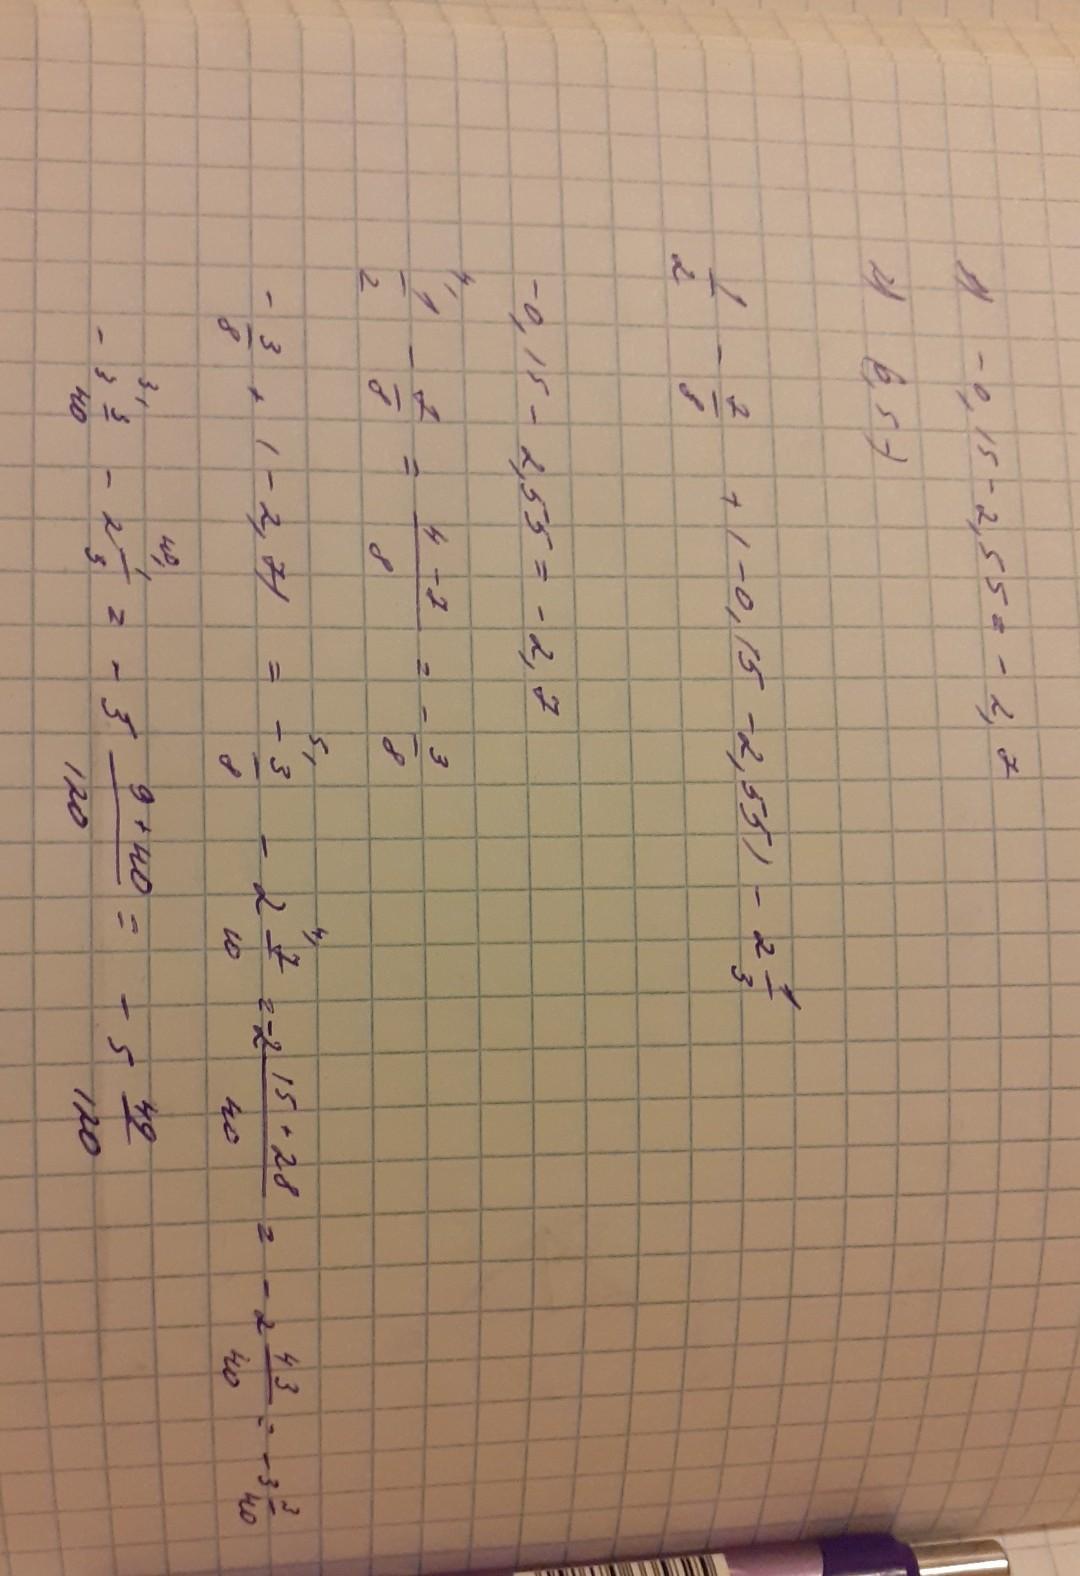 1) -0,15-2,55 = -2,7
2) 6,5 -
1/2 - 7/8 + (-0,15 - 2,55) - 2 1/3
-0,15 - 2,55 = -2,7
4, 1/2 - 7/8 = 4-7/8 = - 3/8
- 3/8 + (-2,7) = - 5, 3/8 - 2 4, 7/10 = -2 15+28/40 = - 2 43/40 = -3 3/40
- 3 3, 3/40 - 2 40, 1/3 = - 5 9+40/120 = - 5 49/120